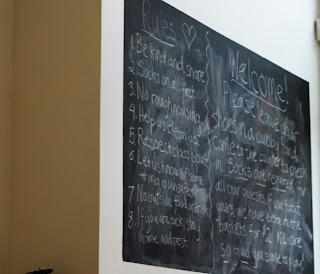 Rules ♡
1. Be kind and share
2. Socks on all feet
3. No roughhousing
4. Help us clean up
5. Respect class
6. Let us know if some
thing is unsafe
7. No outside food or drink
8. If you are sick, stay
home and rest.
Welcome!
Please leave your
shoes in a cubby and
come to the counter to check
in. Socks are required for
all our guests. If you forgot
yours we have extra in the
baskets for $2. We are
so glad you came to play!